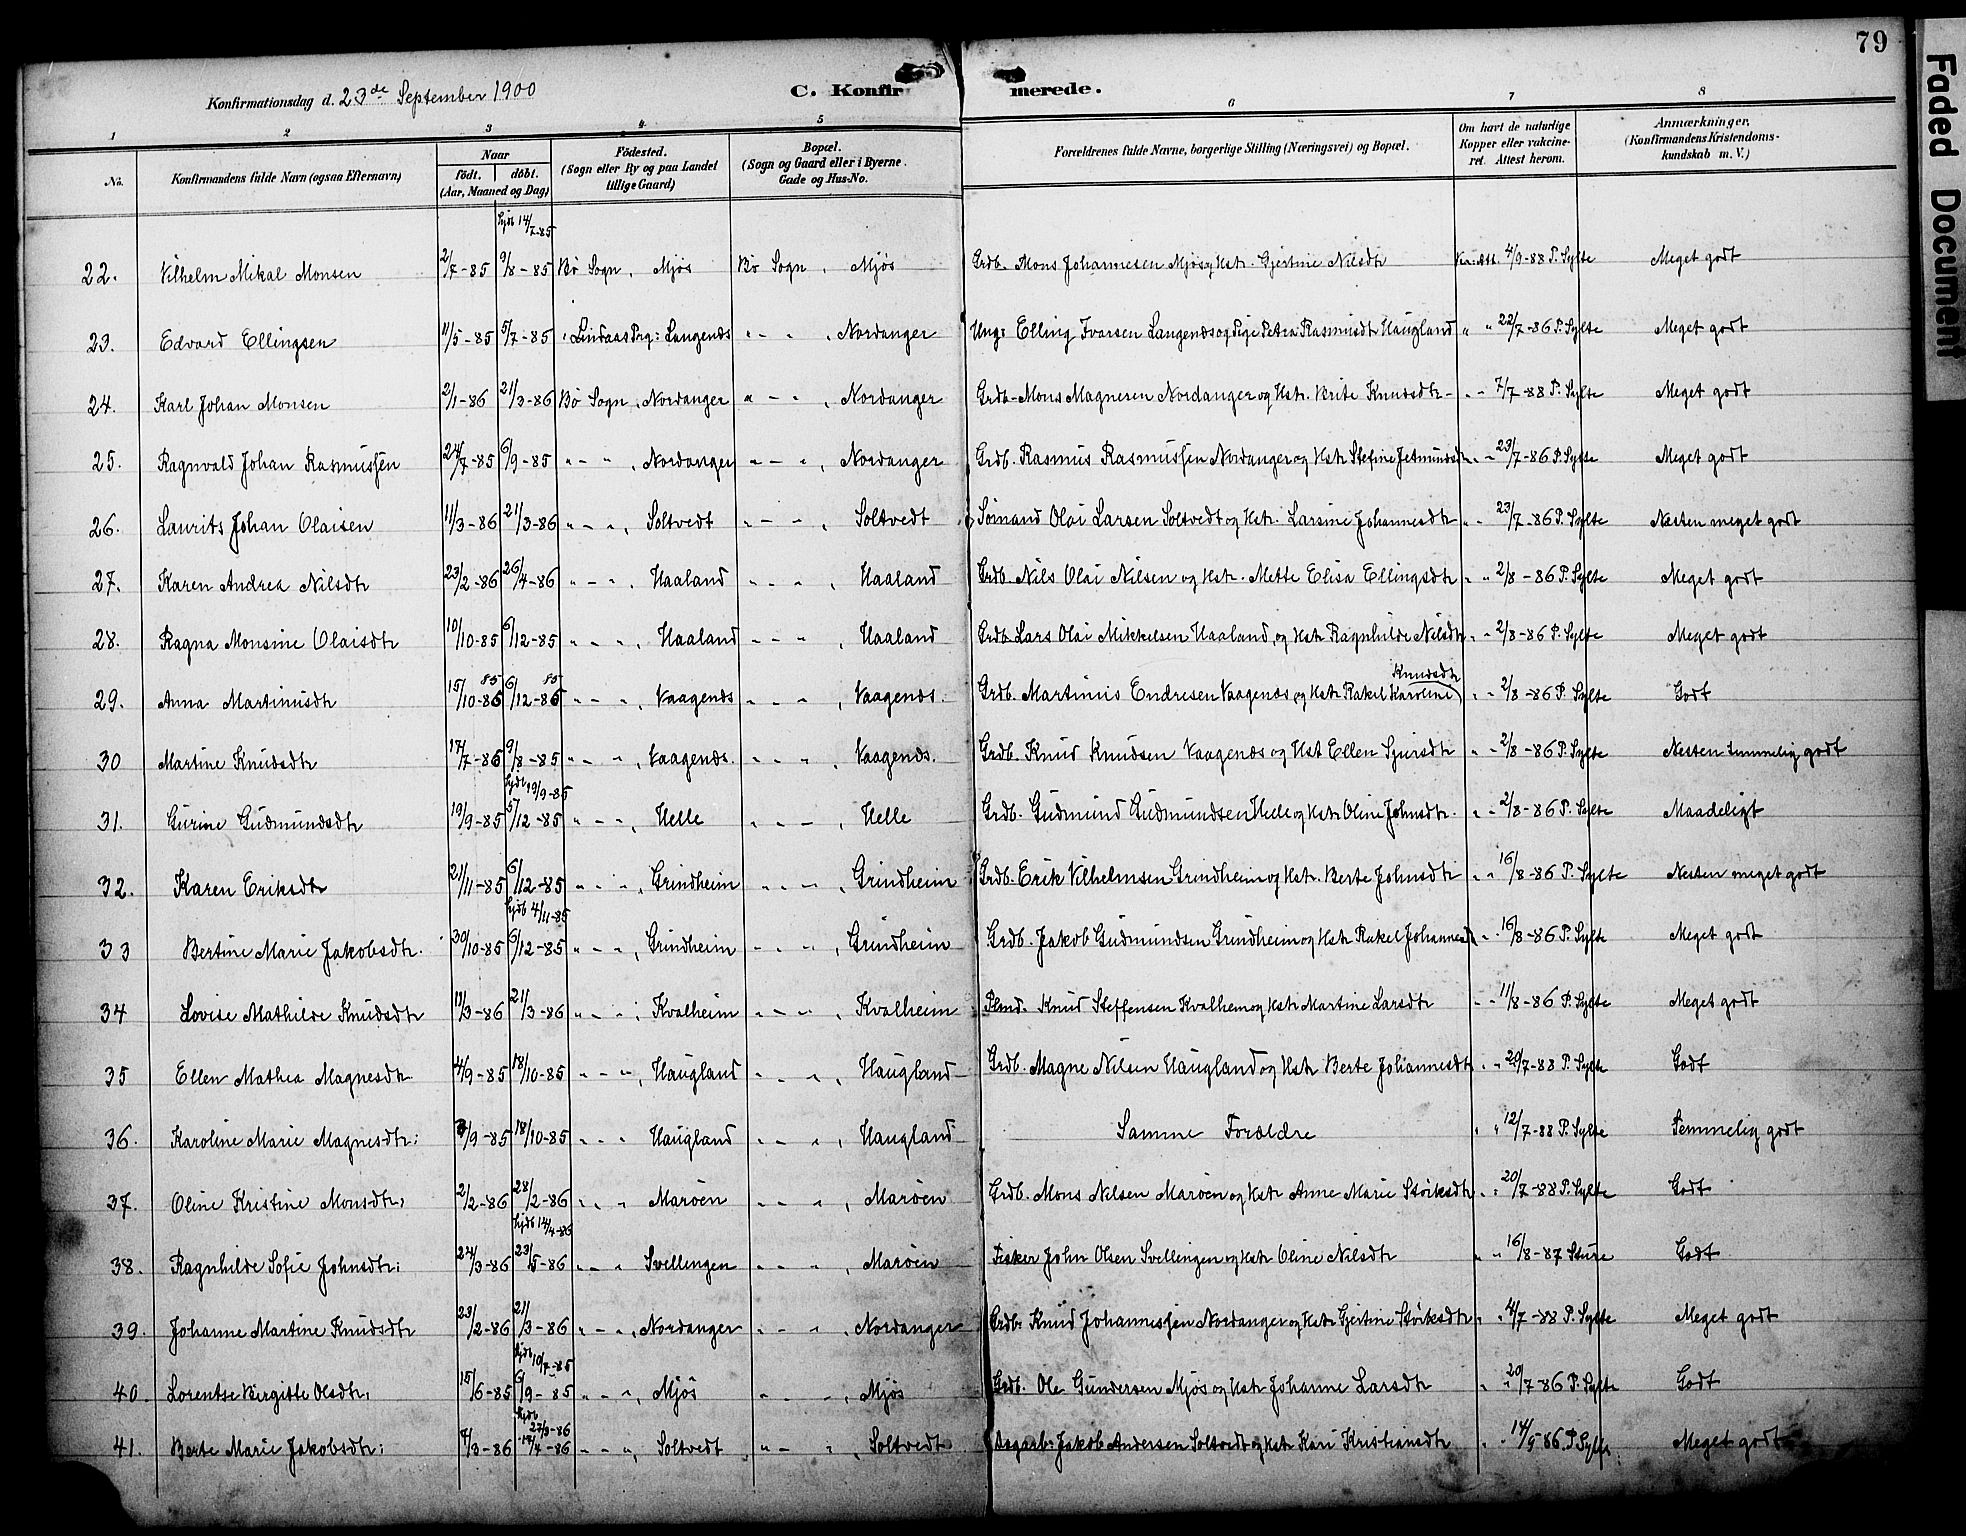 79
Faded Document
Konfirmationsdag d. 23de September 1900
C. Konfirmerede.
1 2 3 4 5 6 7 8
No. Konfirmandens fulde Navn (ogsaa Efternavn) Naar født. døbt. (Aar, Maaned og Dag) Fødested. (Sogn eller By og paa Landet tillige Gaard) Bopæl. (Sogn og Gaard eller i Byerne Gade og Hus-No. Forældrenes fulde Navne, borgerlige Stilling (Næringsvei) og Bopæl. Om havt de naturlige Kopper eller vakcineret. Attest herom. Anmærkninger. (Konfirmandens Kristendomskundskab m. V.)
hjdb 14/7-85
22. Vilhelm Mikal Monsen 2/7-85 9/8-85 Bø Sogn, Mjøs Bø Sogn, Mjøs Grdb. Mons Johannesen Mjøs og Hstr. Gjertine Nilsdtr 4/9-88 P. Sylte Meget godt
23. Edvard Ellingsen 11/5-85 5/7-85 Lindaas Prg: Langenæs " - ", Nordanger Ung: Elling Ivarsen Langenæs og Pige Petra Rasmusdtr Haugland " " 22/7-86 P. Sylte Meget godt
24. Karl Johan Monsen 2/1-86 21/3-86 Bø Sogn, Nordanger " - ", Nordanger Grdb. Mons Magnesen Nordanger og Hstr. Brite Knudsdtr - " - 7/7-88 P. Sylte Meget godt
25. Ragnvald Johan Rasmussen 24/7-85 6/9-85 " - ", Nordanger " - ", Nordanger Grdb. Rasmus Rasmussen Nordanger og Hstr Stefine Jetmundsdtr " - 23/7-86 P. Sylte Meget godt
26. Laurits Johan Olaisen 11/3-86 21/3-86 " - ", Soltvedt " - ", Soltvedt Sømand Olai Larsen Soltvedt og Hstr. Larsine Johannesdtr " " 23/7-86 P. Sylte Nesten meget godt
27. Karen Andrea Nilsdtr 23/2-86 26/4-86 " - ", Haaland " - ", Haaland Grdb. Nils Olai Nilsen og Hstr. Mette Elisa Ellingsdtr " " 2/8-86 P. Sylte Meget godt
28. Ragna Monsine Olaisdtr 10/10-85 6/12-85 " - ", Haaland " - ", Haaland Grdb. Lars Olai Mikkelsen Haaland, og Hstr Ragnhilde Nilsdtr " - 2/8-86 P. Sylte Meget godt
85 85 Knudsdtr
29. Anna Martinusdtr 15/10-86 6/12-86 " - ", Vaagenæs " - ", Vaagenæs. Grdb. Martinus Endresen Vaagenæs og Hstr Rakel Karoline " - 2/8-86 P. Sylte Godt
30 Martine Knudsdtr 17/7-85 9/8-85 " - ", Vaagenæs. " - ", Vaagenæs. Grdb. Knud Knudsen Vaagenæs og Hst Ellen Sjursdtr " - 2/8-86 P. Sylte Nesten temmelig godt
hjdb 19/9-85
31. Gurine Gudmundsdtr 19/9-85 5/12-85 " - ", Helle " - ", Helle Grdb. Gudmund Gudmundsen Helle og Hstr Oline Johnsdtr. " - 2/8-86 P. Sylte Maadeligt
32. Karen Eriksdtr 21/11-85 6/12-85 " - ", Grindheim " - ", Grindheim Grdb. Erik Vilhelmsen Grindheim og Hstr. Berte Johnsdtr " " 16/8-86 P. Sylte Nesten meget godt
hjdb 4/11-85
33 Bertine Marie Jakobsdtr. 30/10-85 6/12-85 " - ", Grindheim " - ", Grindheim Grdb. Jakob Gudmundsen Grindheim og Hstr Rakel Johannesdtr " - 16/8-86 P. Sylte Meget godt
34 Lovise Mathilde Knudsdtr 11/3-86 21/3-86 " - ", Kvalheim " - ", Kvalheim Knud Steffensen Kvalheim og Hstr Martine Larsdtr " - 11/8-86 P. Sylte Meget godt
35 Ellen Mathea Magnesdtr 4/9-85 18/10-85 " - ", Haugland " - ", Haugland Grdb. Magne Nilsen Haugland og Hstr Berte Johannesdtr " " 20/7-88 P. Sylte Godt
36. Karoline Marie Magnesdtr: /9-85 18/10-85 " - " Haugland " - ", Haugland Samme Forældre " " 12/7-88 P. Sylte Temmelig godt
37. Oline Kristine Monsdtr: 2/2-86 28/2-86 " - " Marøen " - ", Marøen Grdb. Mons Nilsen Marøen og Hstr Anne Marie Størksdtr " " 20/7-88 P. Sylte Godt
hjdb 14/4-86
38. Ragnhilde Sofie Johnsdtr: 24/3-86 23/5-86 " - " Svellingen " - ", Marøen Fisker John Olsen Svellingen og Hstr Oline Nilsdtr " " 16/8-87 Sture Godt
39. Johanne Martine Knudsdtr 23/2-86 21/3-86 " - ", Nordanger " - " Nordanger Grdb. Knud Johannessen Nordanger og Hstr Gjertine Størksdtr " " 4/7-88 P. Sylte Meget godt
hjdb 10/7-85
40. Lorentse Birgitte Olsdtr: 15/6-85 6/9-85 " - ", Mjøs " - ", Mjøs Grdb. Ole Gundersen Mjøs og Hstr Johanne Larsdtr " " 20/7-86 P. Sylte Godt
hjdb 27/3-86
41. Berte Marie Jakobsdtr: /3-86 /4-86 " - ", Soltvedt " - ", Soltvedt Jakob Andersen Soltvedt og Hstr Kari Kristiansdtr " " 14/9-86 P. Sylte Meget godt